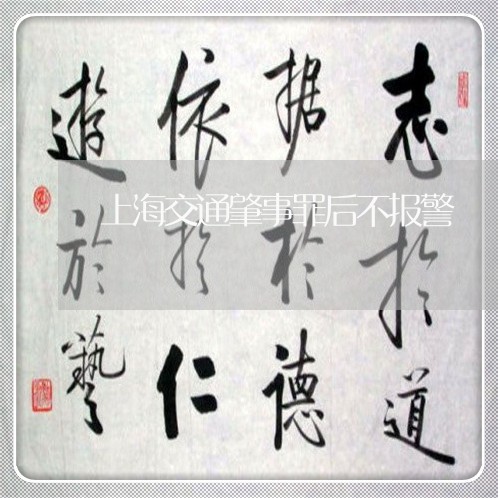 志於道
据於德
依於仁
遊於藝
上海交通肇事罪后不报警